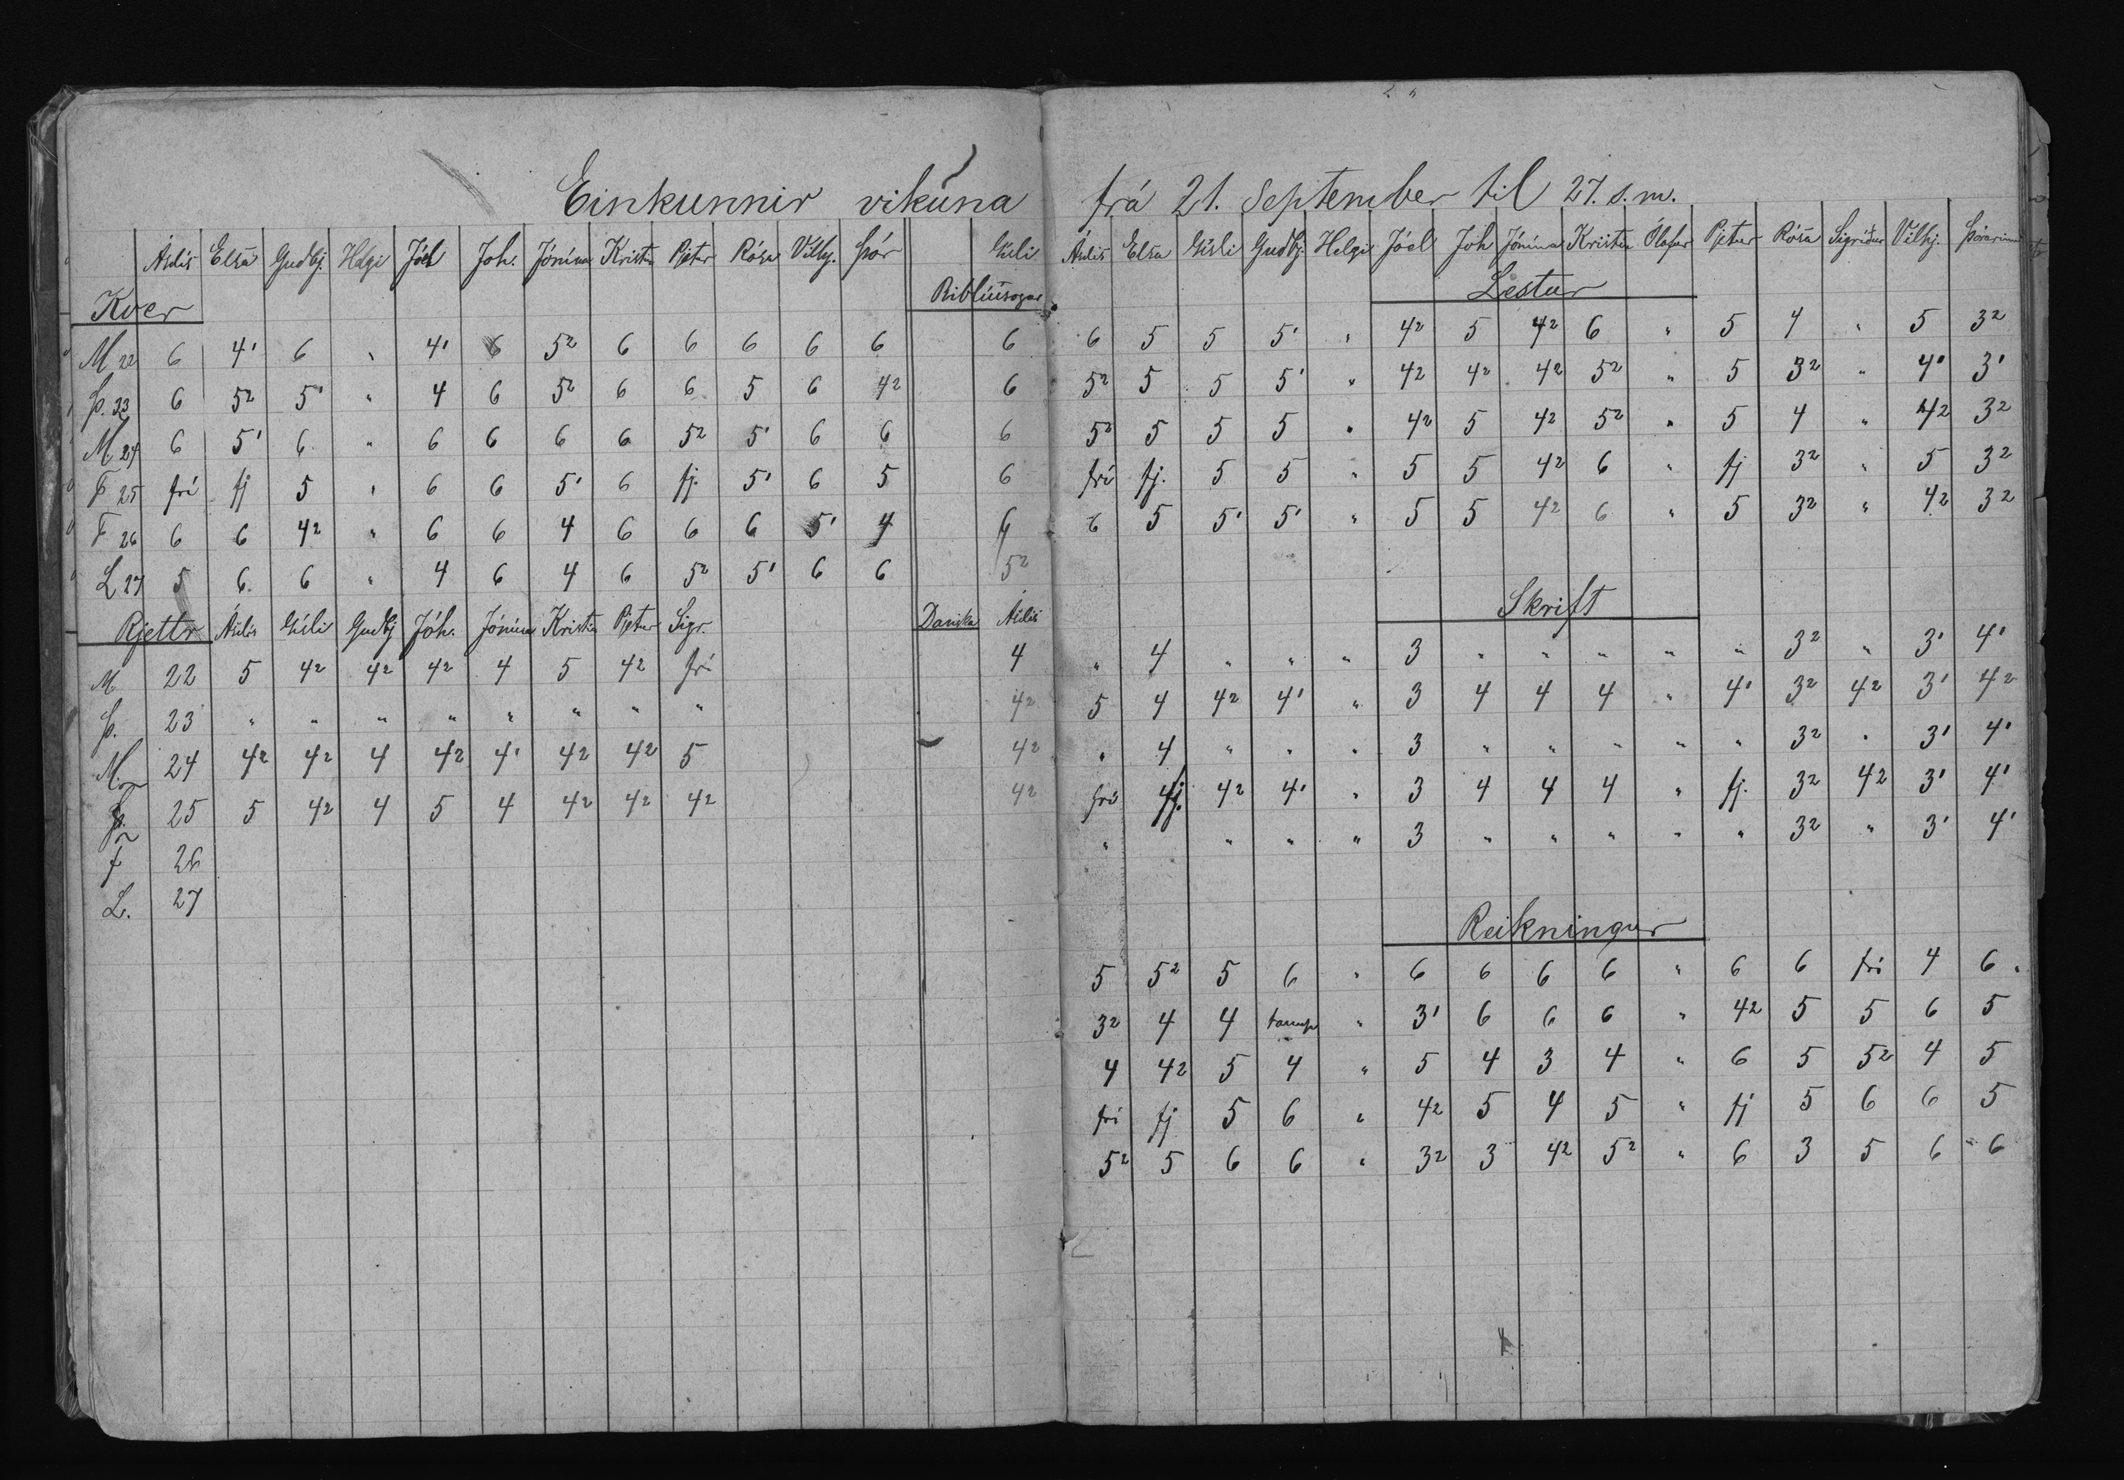 Einkunnir vikuna frá 21. September til 27. s.m.
Ásdís Elsa Guðbj. Helgi Jóel Joh. Jónína Kristín Pjetur Rósa Vilhj. Þór Gísli
Kver Biblíusogur
M 22 6 4¹ 6 " 4¹ 6 5² 6 6 6 6 6 6
Þ. 23 6 5² 5¹ " 4 6 5² 6 6 5 6 4² 6
M 24 6 5¹ 6 " 6 6 6 6 5² 5¹ 6 6 6
F 25 frí fj 5 " 6 6 5¹ 6 fj. 5¹ 6 5 6
F 26 6 6 4² " 6 6 4 6 6 6 5¹ 4 6
L 27 5 6 6 " 4 6 4 6 5² 5¹ 6 6 5²
Rjettr Ásdís Gísli Guðbj Jóh. Jónína Kristín Pjetur Sigr. Danska Ásdís
M 22 5 4² 4² 4² 4 5 4² frí 4
Þ. 23 " " " " " " " " 4²
M. 24 4² 4² 4 4² 4¹ 4² 4² 5 4²
25 5 4² 4 5 4 4² 4² 4² 4²
f 26
L. 27
Ásdís Elsa Gísli Guðbj. Helgi Jóel Joh Jónína Kristín Ólafur Pjetur Rósa Sigríður Vilhj. Þórarinn
Lestur
6 5 5 5¹ " 4² 5 4² 6 " 5 4 " 5 3²
5² 5 5 5¹ " 4² 4² 4² 5² " 5 3² " 4¹ 3¹
5² 5 5 5 " 4² 5 4² 5² " 5 4 " 4² 3²
frí fj. 5 5 " 5 5 4² 6 " fj 3² " 5 3²
6 5 5¹ 5¹ " 5 5 4² 6 " 5 3² " 4² 3²
Skrift
" 4 " " " 3 " " " " " 3² " 3¹ 4¹
5 4 4² 4¹ " 3 4 4 4 " 4¹ 3² 4² 3¹ 4²
" 4 " " " 3 " " " " " 3² " 3¹ 4¹
frí fj. 4² 4¹ " 3 4 4 4 " fj. 3² 4² 3¹ 4¹
" " " " 3 " " " " " 3² " 3¹ 4¹
Reikningur
5 5² 5 6 " 6 6 6 6 " 6 6 frí 4 6
3² 4 4 " 3¹ 6 6 6 " 4² 5 5 6 5
4 4² 5 4 " 5 4 3 4 " 6 5 5² 4 5
frí fj 5 6 " 4² 5 4 5 " fj 5 6 6 5
5² 5 6 6 " 3² 3 4² 5² " 6 3 5 6 6